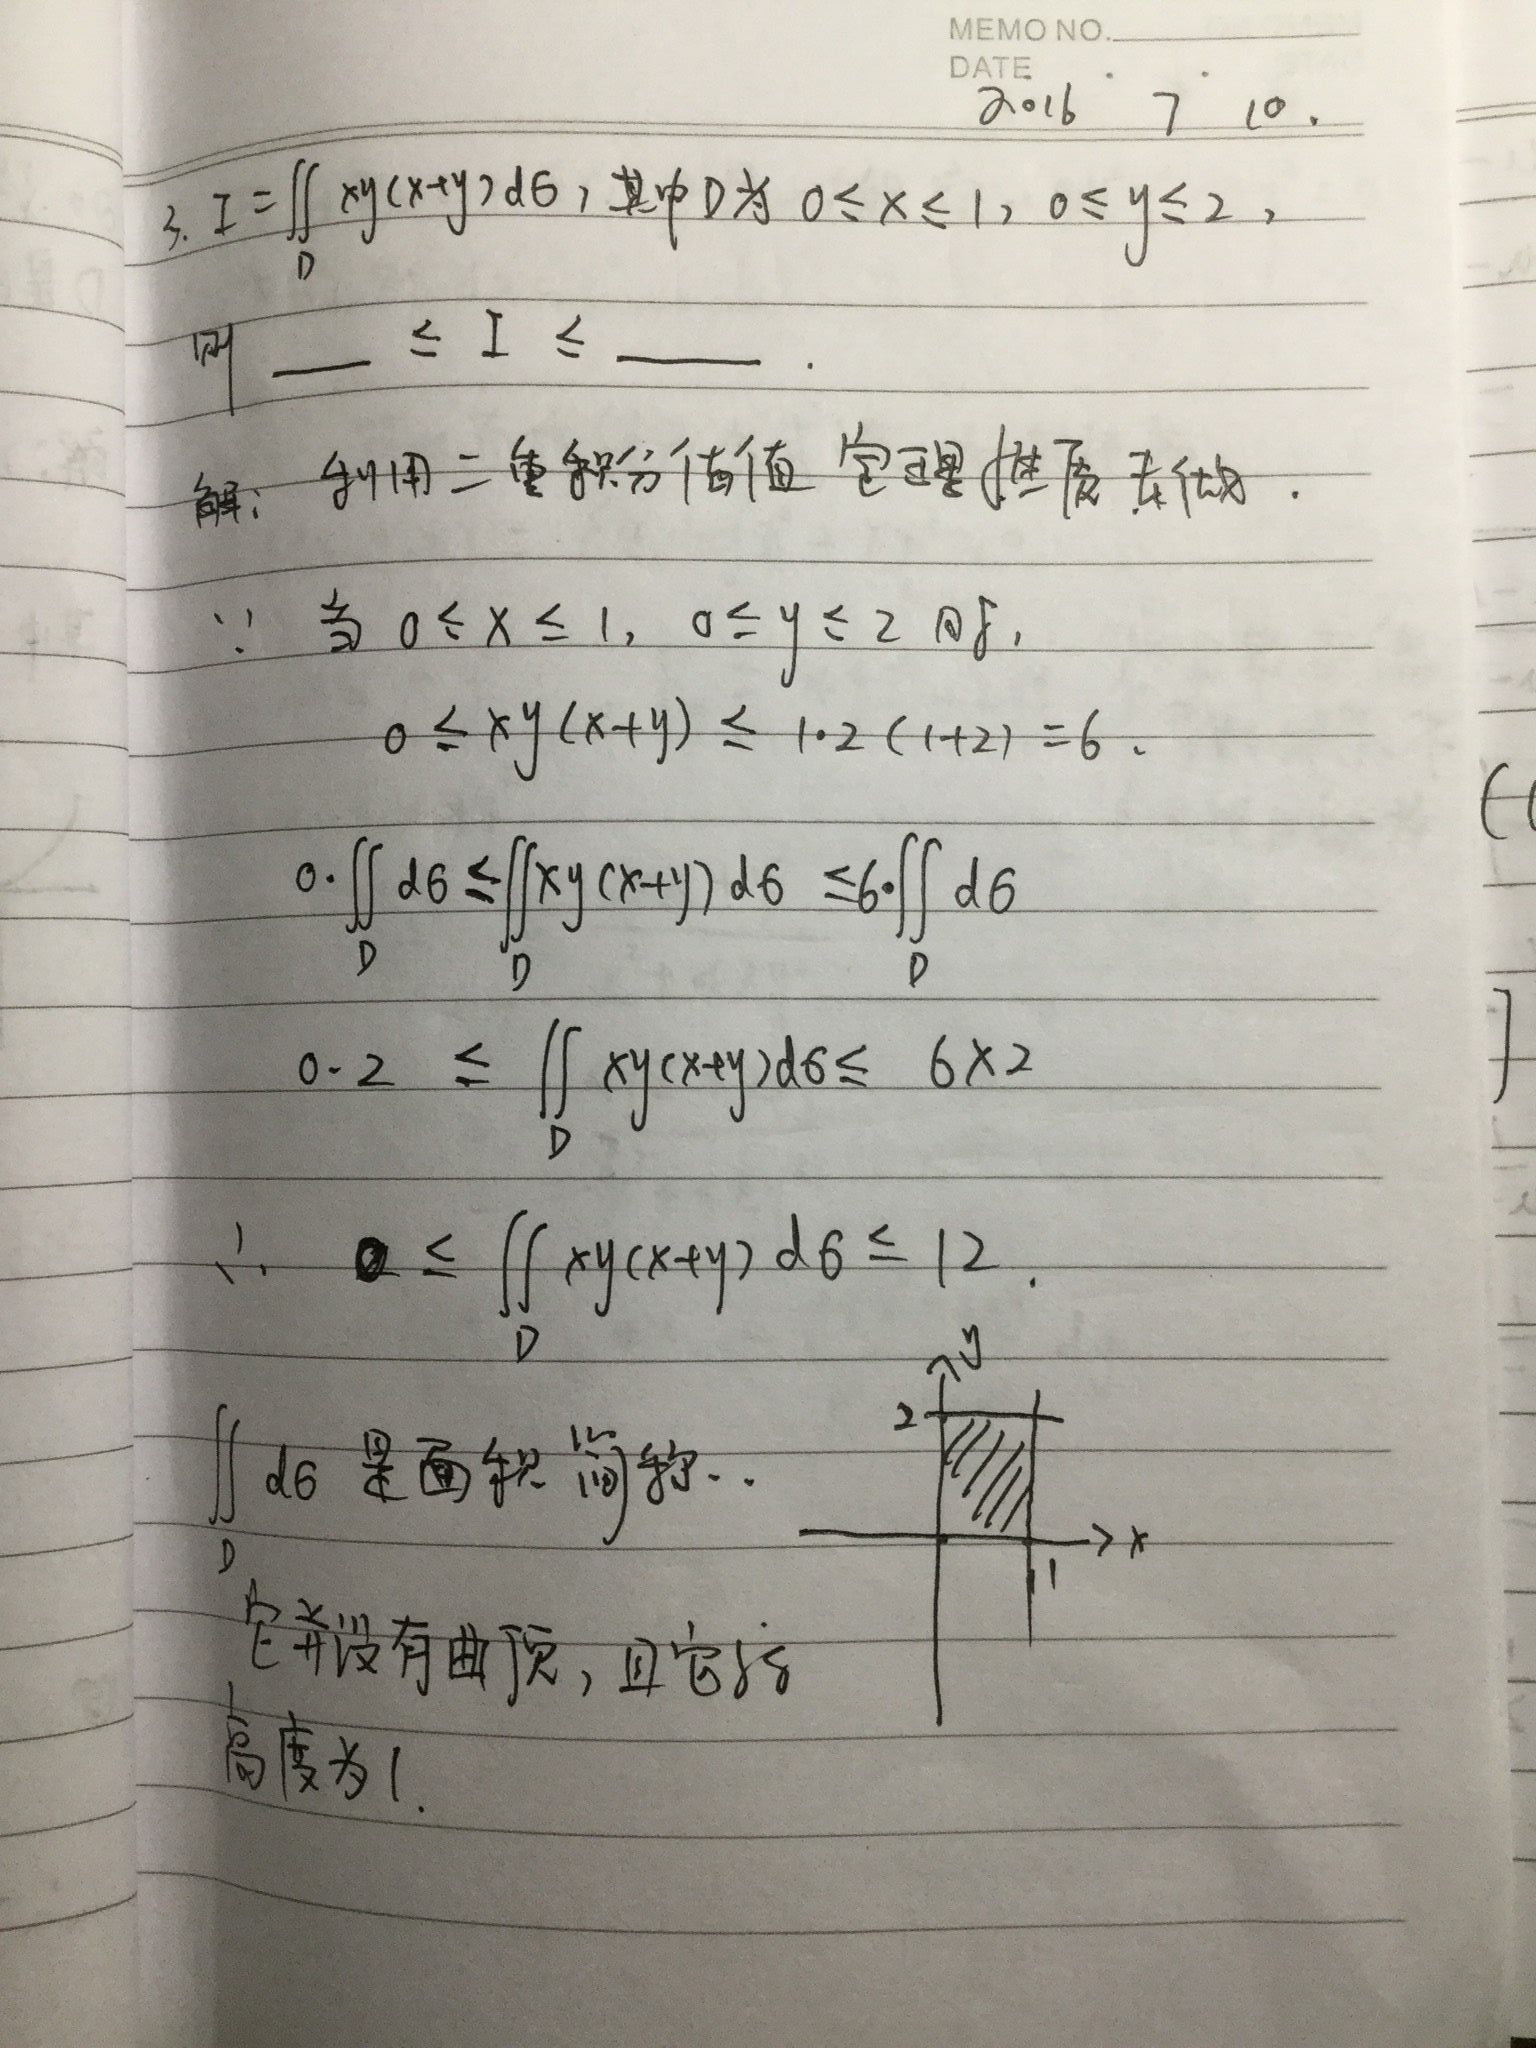 MEMO NO.
DATE
2016 7 10.
3. I = ∬ xy(x+y)dσ, 其中D为 0≤x≤1, 0≤y≤2,
D
则 ___ ≤ I ≤ ___ .
解: 利用二重积分估值定理性质去做.
∵ 当 0≤x≤1, 0≤y≤2时,
0≤xy(x+y) ≤ 1·2(1+2)=6.
0·∬ dσ ≤ ∬ xy(x+y)dσ ≤6·∬ dσ
D D D
0·2 ≤ ∬ xy(x+y)dσ ≤ 6×2
D
∴ 0 ≤ ∬ xy(x+y) dσ ≤ 12.
D
y
2
x
1
∬ dσ 是面积简称..
D
它并没有曲顶, 且它的
高度为1.